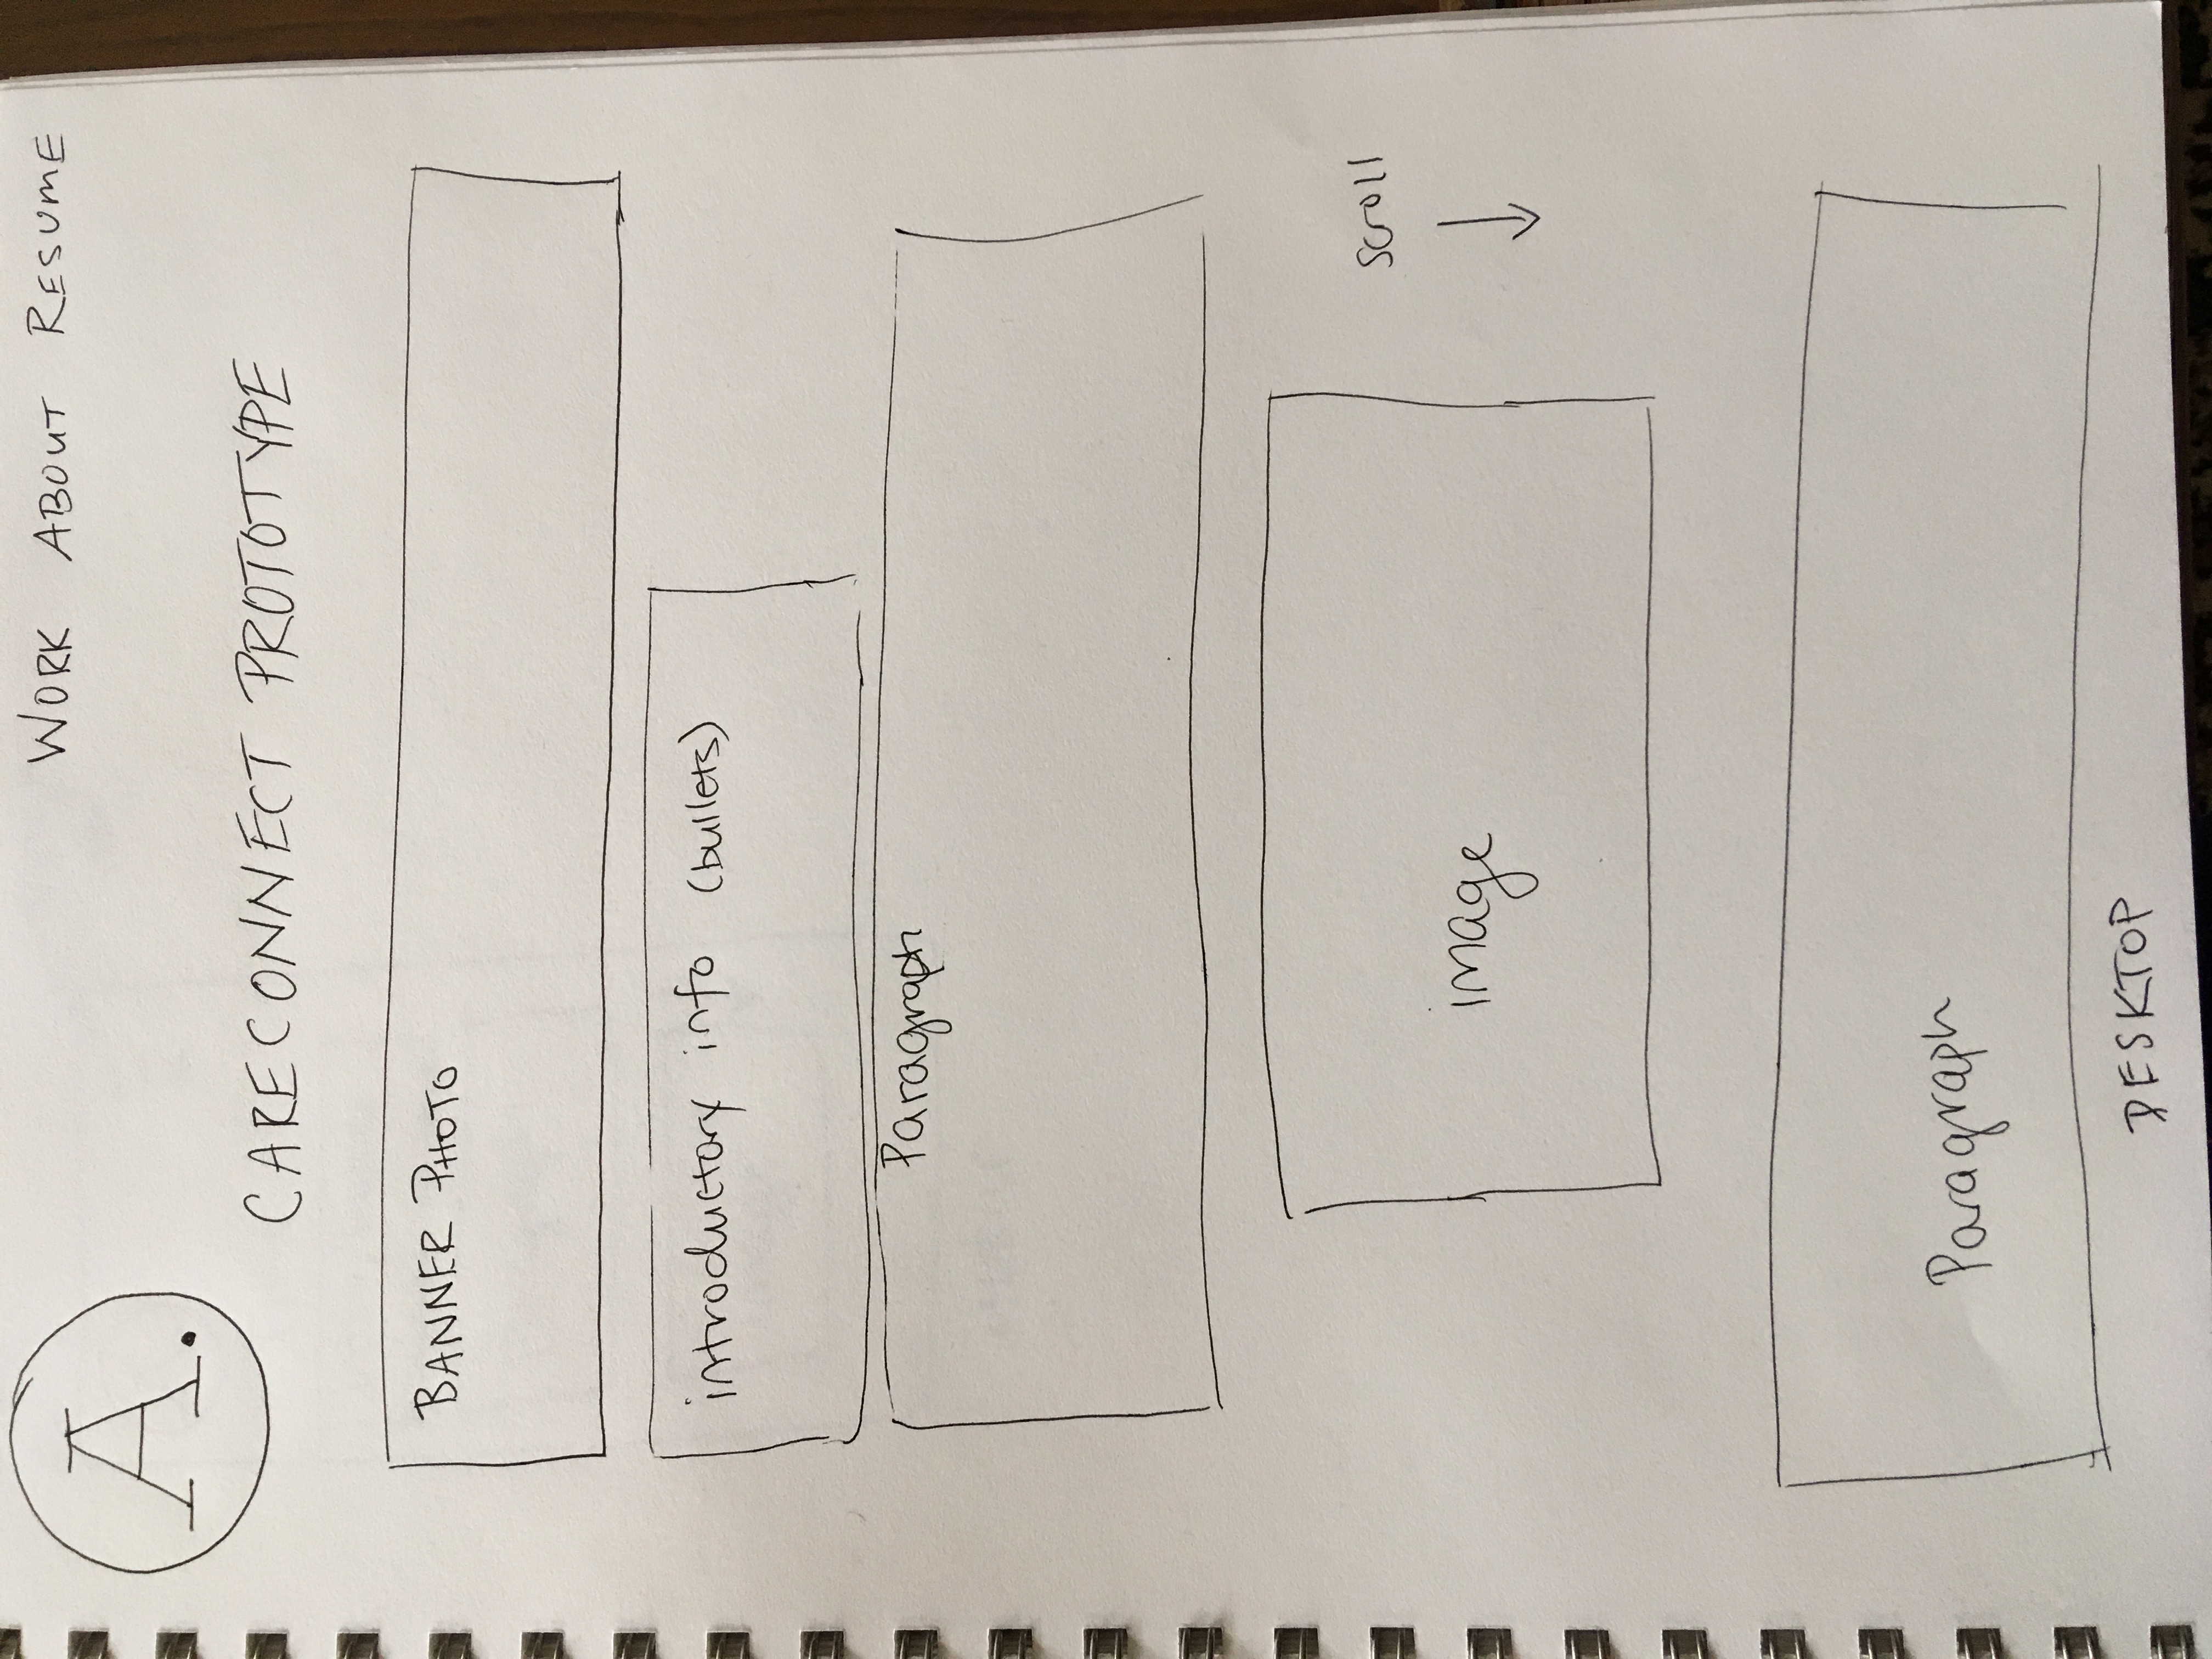 A.
WORK ABOUT RESUME
CARECONNECT PROTOTYPE
BANNER PHOTO
introductory info (bullets)
Paragraph
image
scroll
Paragraph
DESKTOP